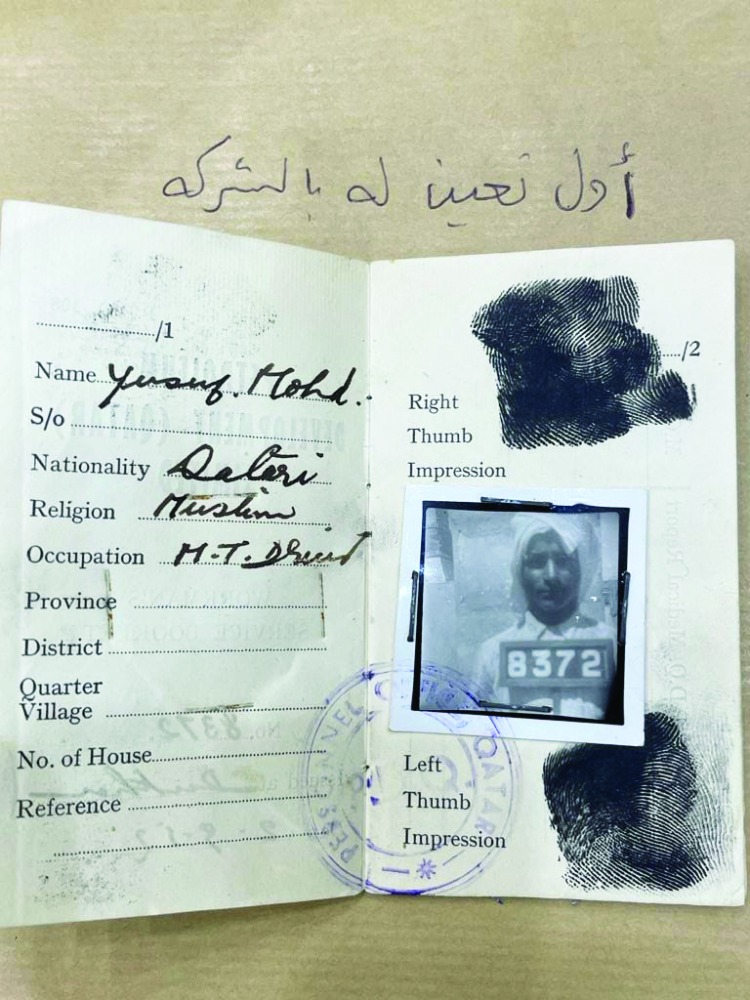 أول تعيين له بالشركه
/1
Name Yusuf. Mohd.
S/o
Nationality Qatari
Religion Muslim
Occupation M.T. Driver
Province
District
Quarter
Village
No. of House
Reference
/2
Right
Thumb
Impression
8372
Left
Thumb
Impression
QATAR